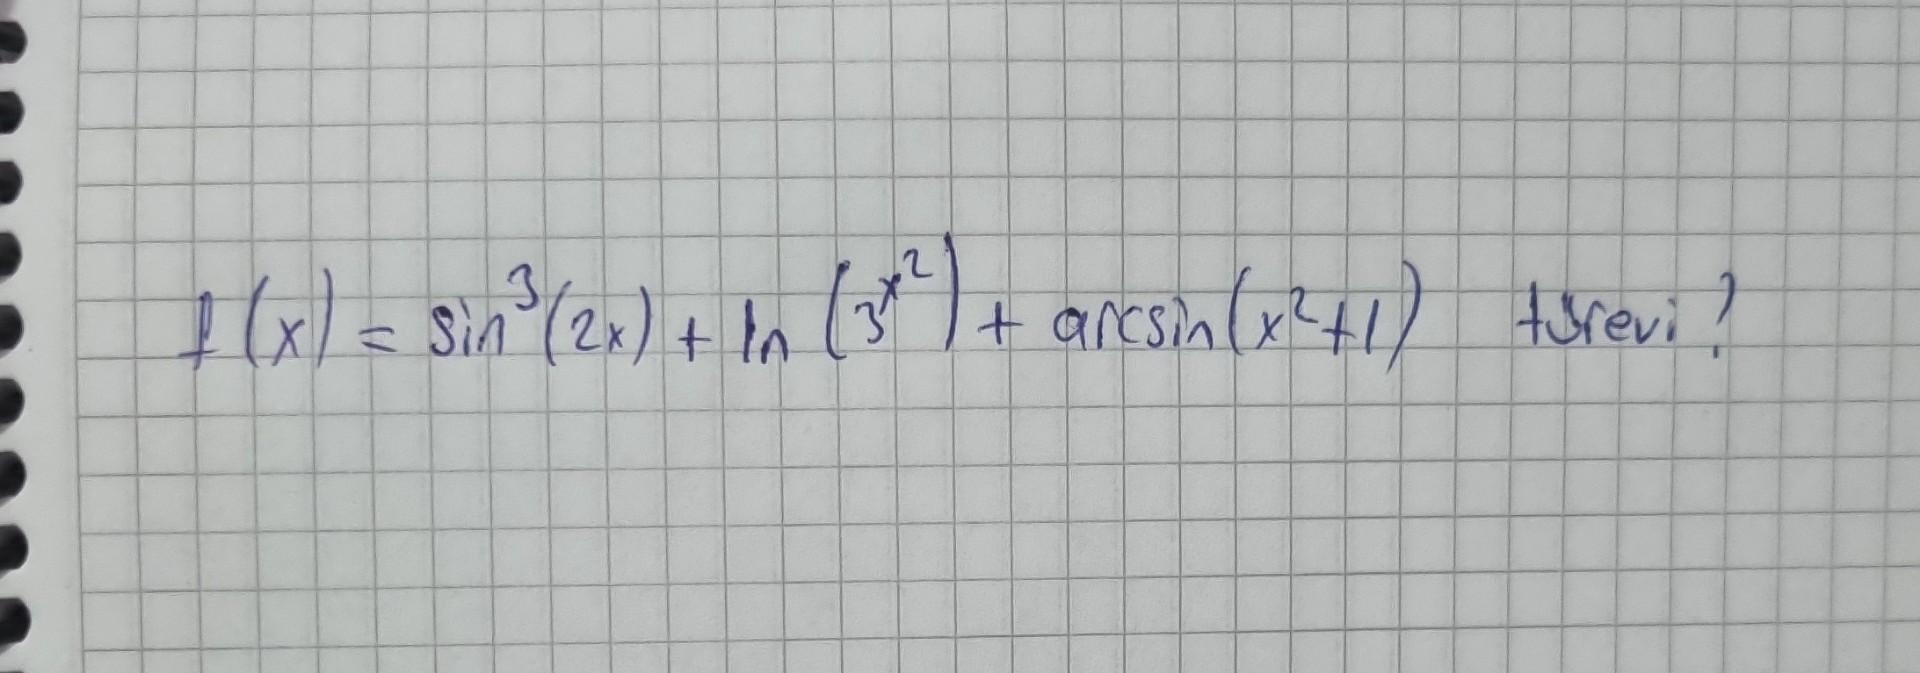 f(x) = sin³(2x) + ln(3^x²) + arcsin(x²+1) türevi?